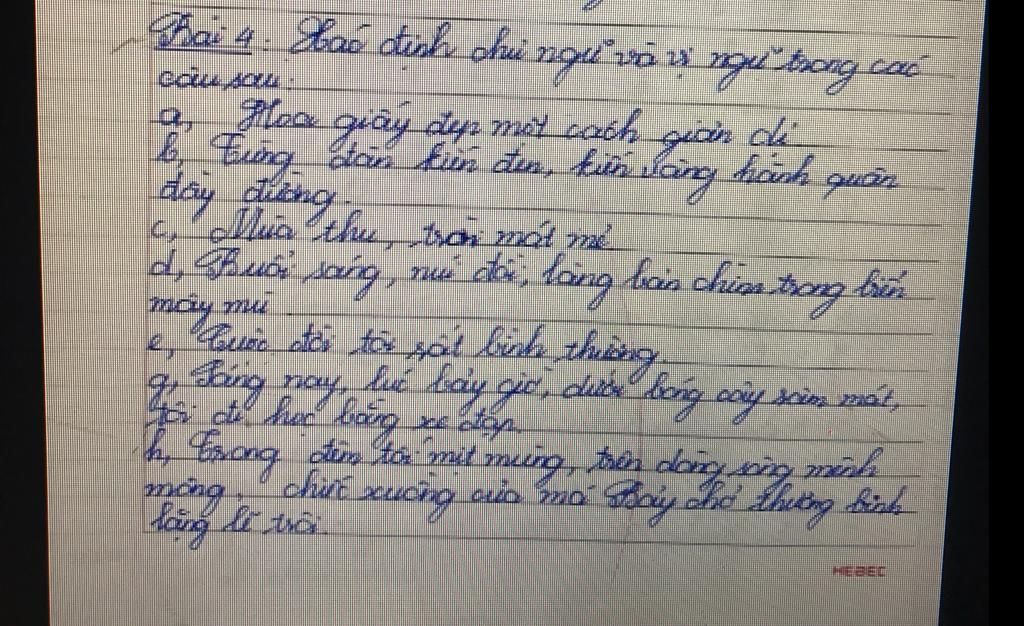 Bài 4. Xác định chủ ngữ và vị ngữ trong các
câu sau:
a, Hoa giấy đẹp một cách giản dị
b, Từng đàn kiến đen, kiến vàng hành quân
đầy đường.
c, Mùa thu, trời mát mẻ
d, Buổi sáng, núi đồi, làng bản chìm trong biển
mây mù
e, Cuộc đời tôi rất bình thường
g, Sáng nay, lúc bảy giờ, dưới bóng cây râm mát,
tôi đi học bằng xe đạp.
h, Trong đêm tối mịt mùng, trên dòng sông mênh
mông, chiếc xuồng của má Bảy chở thương binh
lặng lẽ trôi.
HEBEC